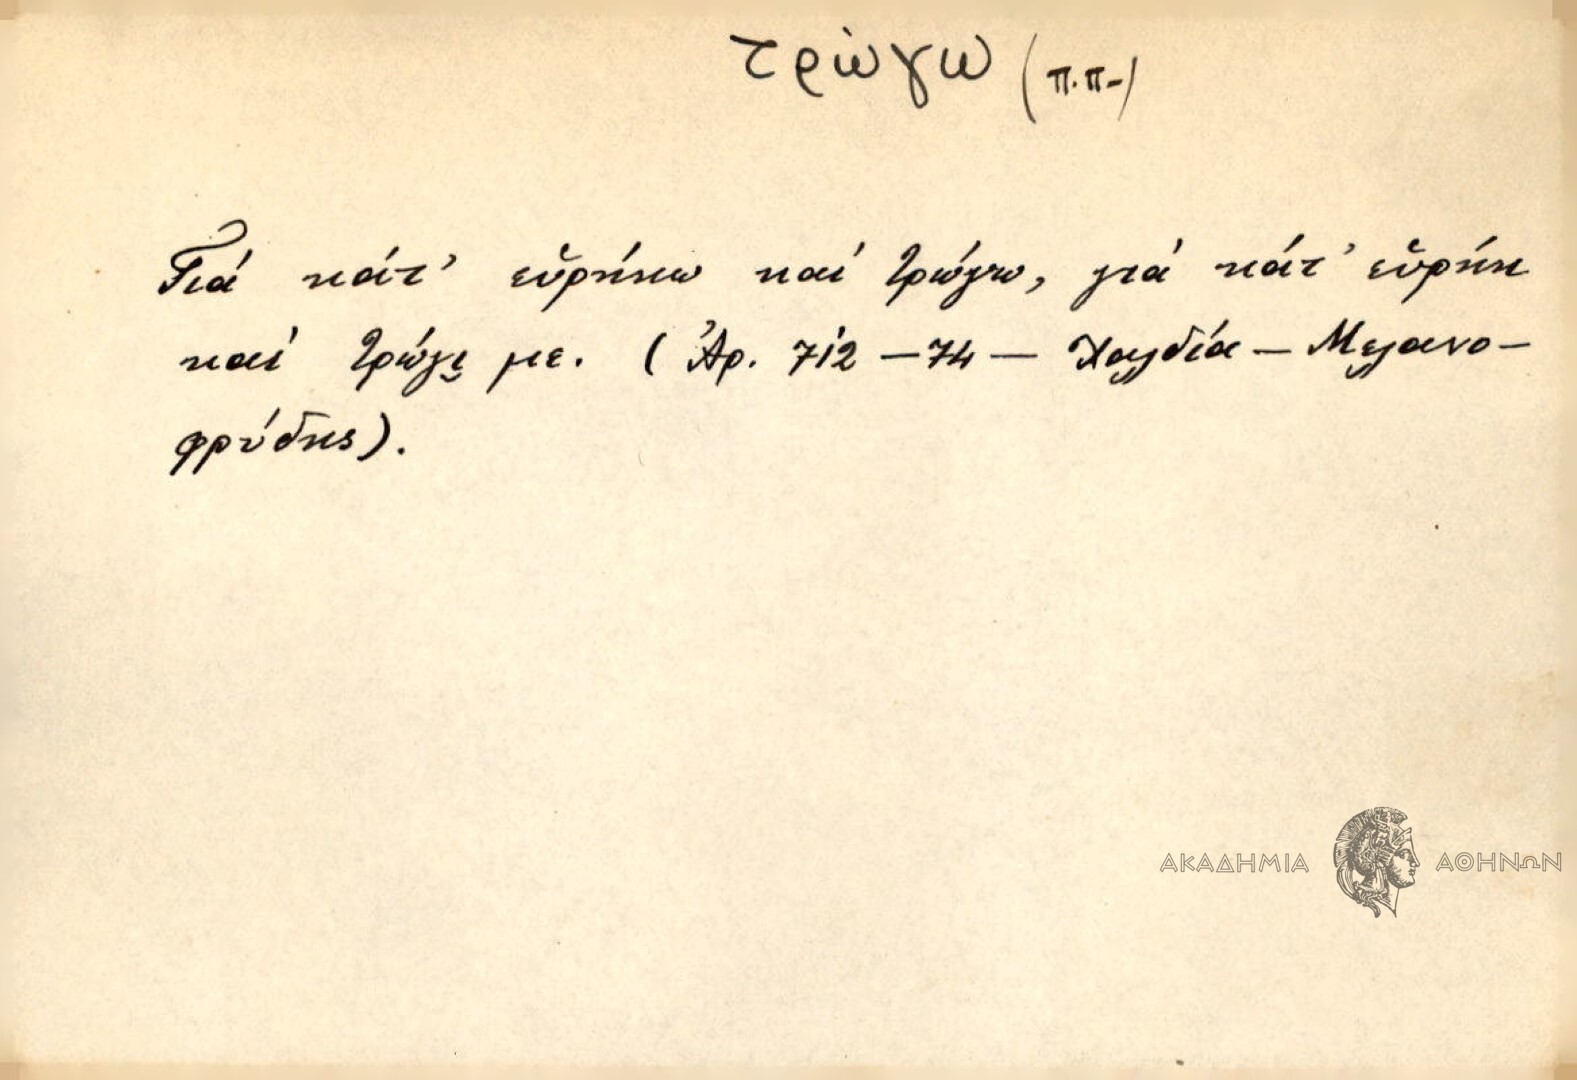 τρώγω (π.π.)
Γιά κάτ' εὑρήκω καί τρώγω, γιά κάτ' εὑρήκ
καί τρώγ̮ι με. (Ἀρ. 712 – 74 – Χαλδία – Μελανο-
φρύδης).
ΑΚΑΔΗΜΙΑ ΑΘΗΝΩΝ